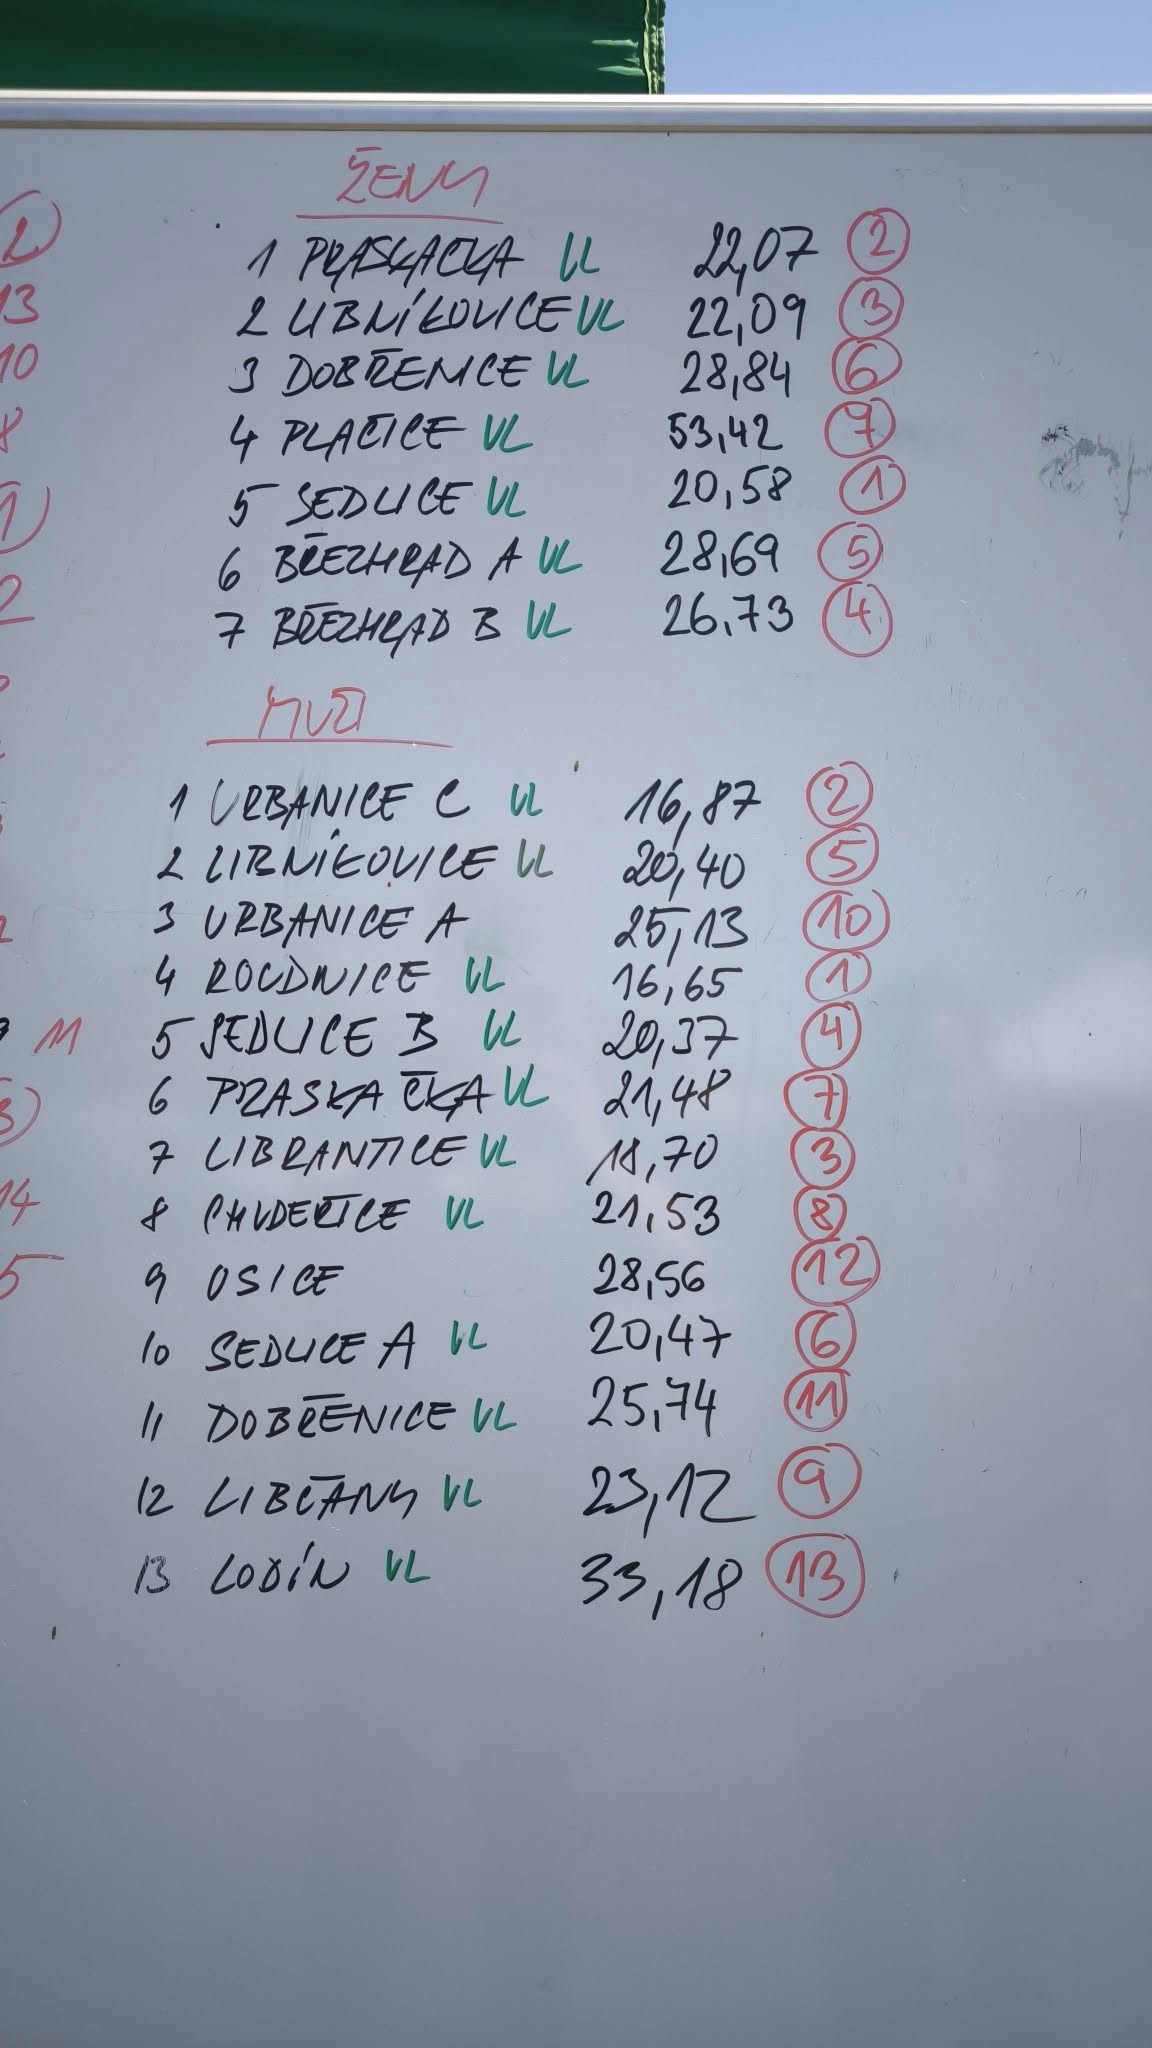 ŽENY
1 PRASKAČKA VL 22,07 2
2 LIBNÍKOVICE VL 22,09 3
3 DOBŘENICE VL 28,84 6
4 PLAČICE VL 53,42 7
5 SEDLICE VL 20,58 1
6 BŘEZHRAD A VL 28,69 5
7 BŘEZHRAD B VL 26,73 4
MUŽI
1 URBANICE C VL 16,87 2
2 LIBNÍKOVICE VL 20,40 5
3 URBANICE A 25,13 10
4 ROUDNICE VL 16,65 1
5 SEDLICE B VL 20,37 4
6 PRASKAČKA VL 21,48 7
7 LIBRANTICE VL 18,70 3
8 CHUDEŘICE VL 21,53 8
9 OSICE 28,56 12
10 SEDLICE A VL 20,47 6
11 DOBŘENICE VL 25,74 11
12 LIBČANY VL 23,12 9
13 LODÍN VL 33,18 13
2
13
10
8
1
2
11
14
5